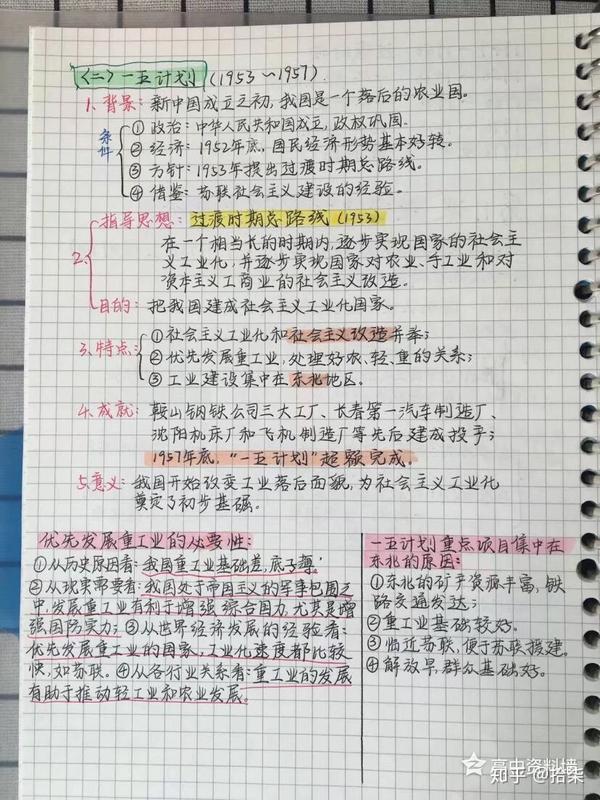 〈二〉一五计划 (1953～1957).
1. 背景: 新中国成立之初,我国是一个落后的农业国。
条件
① 政治: 中华人民共和国成立,政权巩固.
② 经济: 1952年底,国民经济形势基本好转。
③ 方针: 1953年提出过渡时期总路线。
④ 借鉴: 苏联社会主义建设的经验。
2. 指导思想: 过渡时期总路线(1953)
在一个相当长的时期内,逐步实现国家的社会主
义工业化,并逐步实现国家对农业、手工业和对
资本主义工商业的社会主义改造。
目的: 把我国建成社会主义工业化国家.
3. 特点:
① 社会主义工业化和社会主义改造并举;
② 优先发展重工业,处理好农、轻、重的关系;
③ 工业建设集中在东北地区.
4. 成就: 鞍山钢铁公司三大工厂、长春第一汽车制造厂、
沈阳机床厂和飞机制造厂等先后建成投产;
1957年底,“一五计划”超额完成.
5. 意义: 我国开始改变工业落后面貌,为社会主义工业化
奠定了初步基础。
优先发展重工业的必要性:
①从历史原因看:我国重工业基础差,底子薄;
②从现实需要看:我国处于帝国主义的军事包围之
中,发展重工业有利于增强综合国力,尤其是增
强国防实力;③从世界经济发展的经验看:
优先发展重工业的国家,工业化速度都比较
快,如苏联。④从各行业关系看:重工业的发展
有助于推动轻工业和农业发展。
一五计划重点项目集中在
东北的原因:
①东北的矿产资源丰富,铁
路交通发达;
②重工业基础较好。
③临近苏联,便于苏联援建。
④解放早,群众基础好。
高中资料墙
知乎 @拾柒